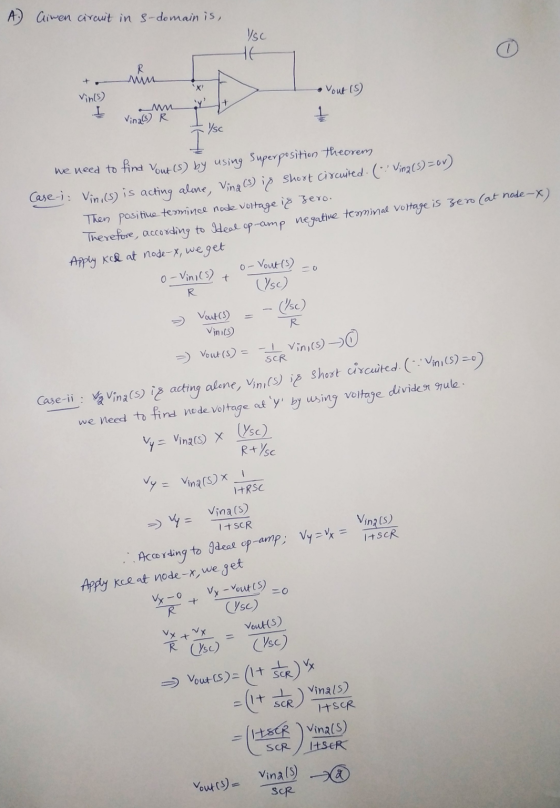 A) Given circuit in s-domain is,
①
1/SC
R
+
Vin1(S)
'x'
'y'
-
+
Vout(S)
Vin2(S) R
1/SC
we need to find Vout(S) by using Superposition theorem
Case-i: Vin1(S) is acting alone, Vin2(S) is short circuited. (∵ Vin2(S)=0V)
Then positive terminal node voltage is zero.
Therefore, according to Ideal op-amp negative terminal voltage is zero (at node-X)
Apply KCL at node-X, we get
(0-Vin1(S))/R + (0-Vout(S))/(1/SC) = 0
⇒ Vout(S)/Vin1(S) = -(1/SC)/R
⇒ Vout(S) = -1/SCR Vin1(S) → ①
Case-ii: Vin2(S) is acting alone, Vin1(S) is short circuited. (∵ Vin1(S)=0)
we need to find node voltage at 'Y' by using voltage divider rule.
Vy = Vin2(S) × (1/SC)/(R+1/SC)
Vy = Vin2(S) × 1/(1+RSC)
⇒ Vy = Vin2(S)/(1+SCR)
∴ According to Ideal op-amp; Vy = Vx = Vin2(S)/(1+SCR)
Apply KCL at node-X, we get
(Vx-0)/R + (Vx-Vout(S))/(1/SC) = 0
Vx/R + Vx/(1/SC) = Vout(S)/(1/SC)
⇒ Vout(S) = (1 + 1/SCR) Vx
= (1 + 1/SCR) Vin2(S)/(1+SCR)
= ((1+SCR)/SCR) Vin2(S)/(1+SCR)
Vout(S) = Vin2(S)/SCR → ②